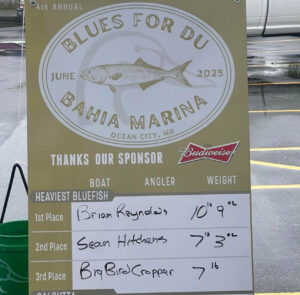 4th ANNUAL
BLUES FOR DU
JUNE 2025
BAHIA MARINA
OCEAN CITY, MD
THANKS OUR SPONSOR Budweiser
BOAT ANGLER WEIGHT
HEAVIEST BLUEFISH
1st Place Brian Reynolds 10 lb 9 oz
2nd Place Sean Hitchens 7 lb 3 oz
3rd Place Big Bird Cropper 7 lb
CALCUTTA